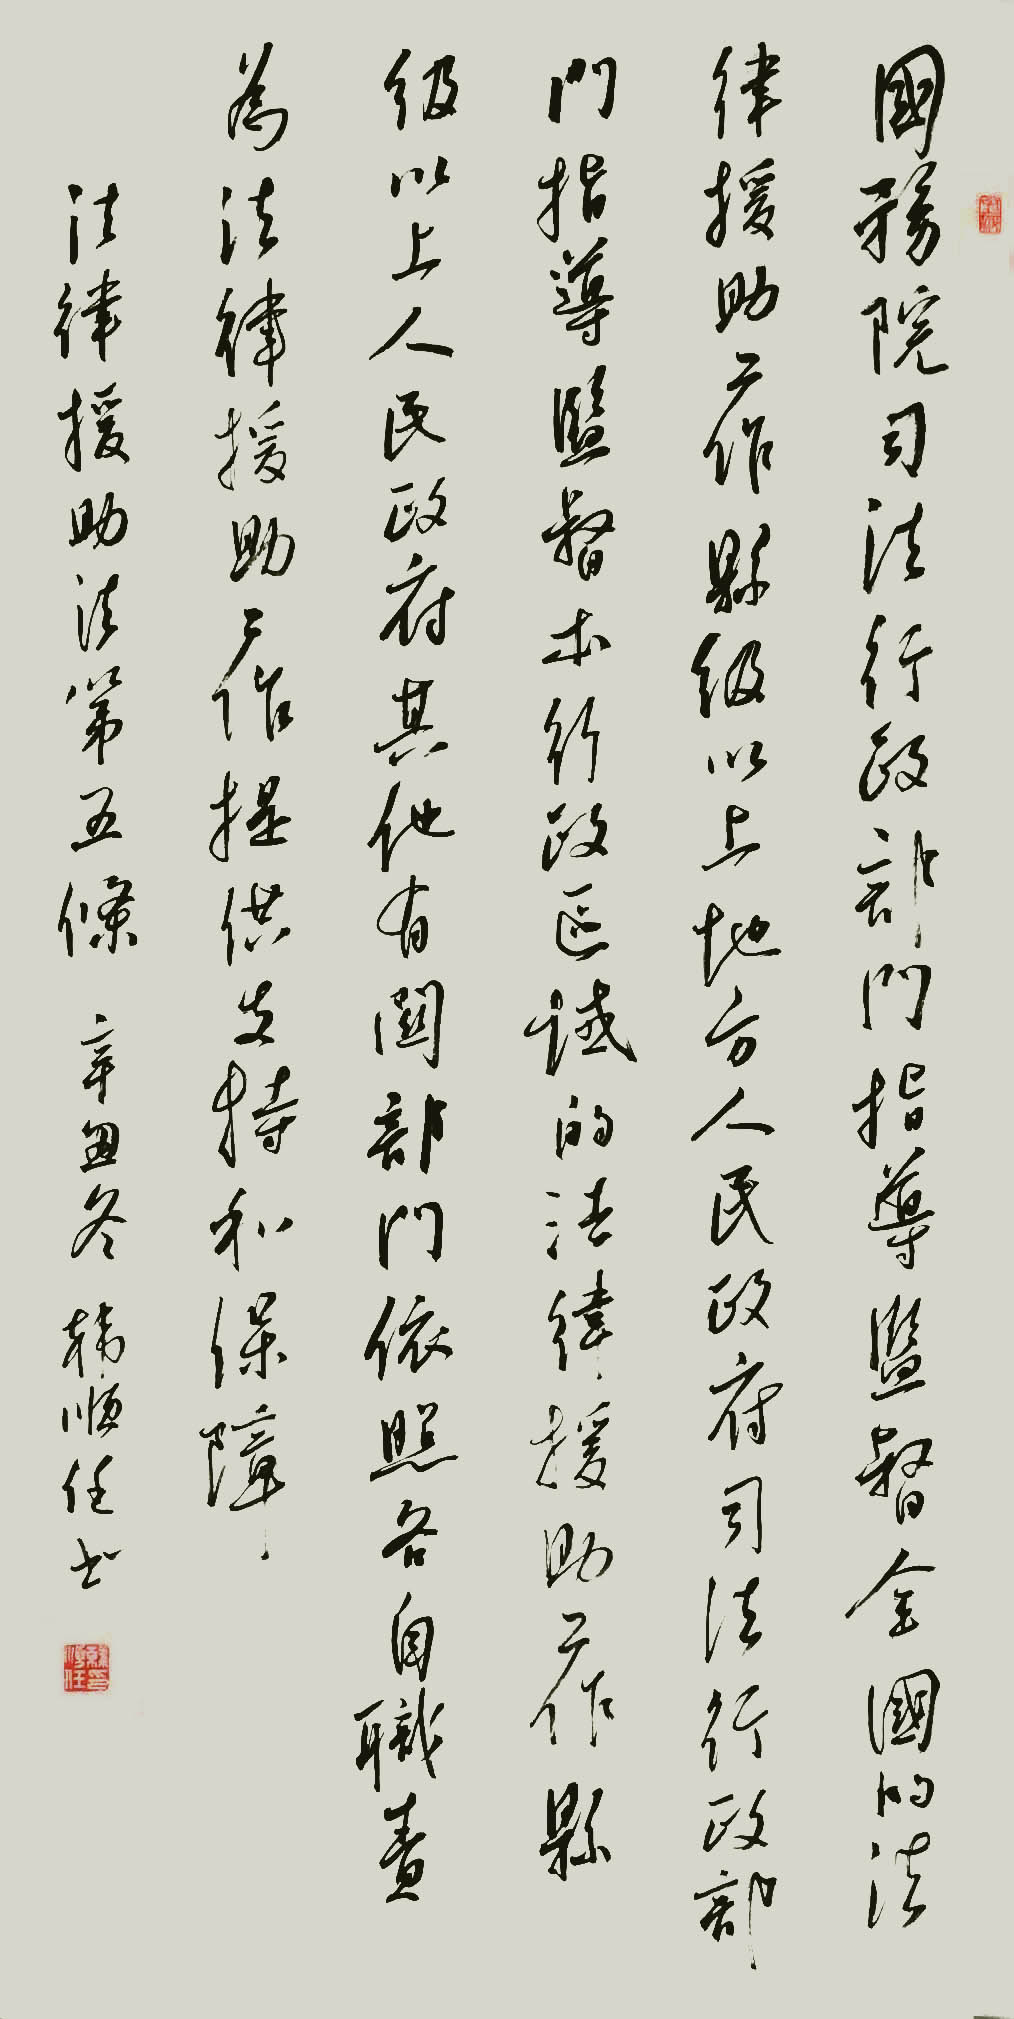 國務院司法行政部門指導監督全國的法
律援助工作縣級以上地方人民政府司法行政部
門指導監督本行政區域的法律援助工作縣
級以上人民政府其他有關部門依照各自職責
為法律援助工作提供支持和保障
法律援助法第五條 辛丑冬 韓順任书
韓順任印